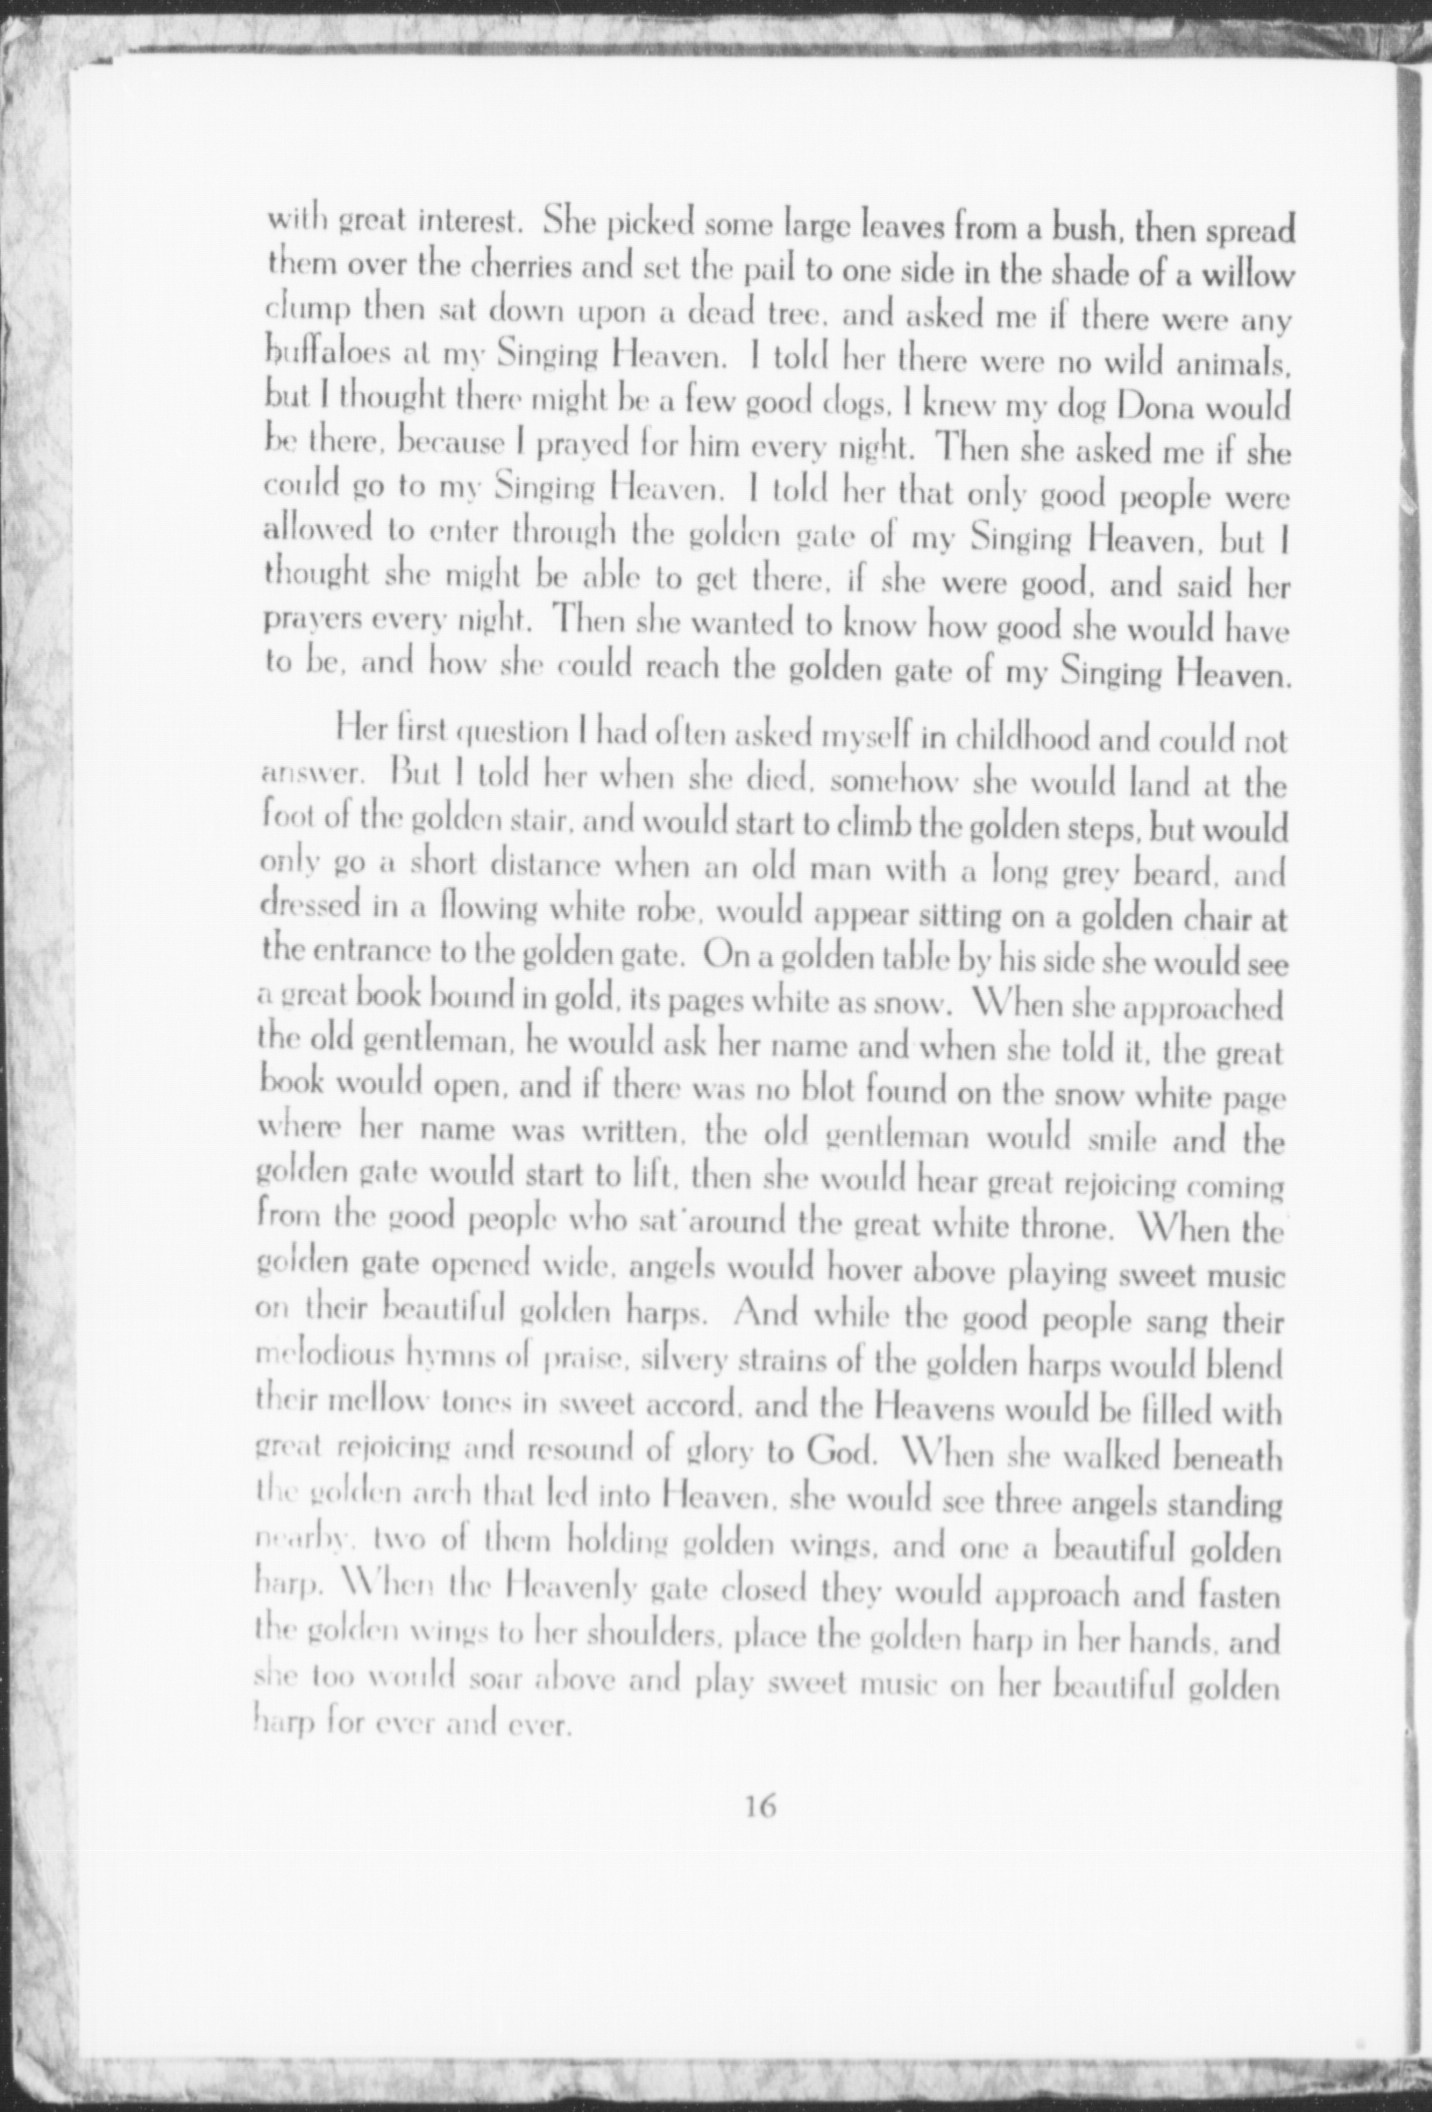 with great interest. She picked some large leaves from a bush, then spread
them over the cherries and set the pail to one side in the shade of a willow
clump then sat down upon a dead tree, and asked me if there were any
buffaloes at my Singing Heaven. I told her there were no wild animals,
but I thought there might be a few good dogs, I knew my dog Dona would
be there, because I prayed for him every night. Then she asked me if she
could go to my Singing Heaven. I told her that only good people were
allowed to enter through the golden gate of my Singing Heaven, but I
thought she might be able to get there, if she were good, and said her
prayers every night. Then she wanted to know how good she would have
to be, and how she could reach the golden gate of my Singing Heaven.
Her first question I had often asked myself in childhood and could not
answer. But I told her when she died, somehow she would land at the
foot of the golden stair, and would start to climb the golden steps, but would
only go a short distance when an old man with a long grey beard, and
dressed in a flowing white robe, would appear sitting on a golden chair at
the entrance to the golden gate. On a golden table by his side she would see
a great book bound in gold, its pages white as snow. When she approached
the old gentleman, he would ask her name and when she told it, the great
book would open, and if there was no blot found on the snow white page
where her name was written, the old gentleman would smile and the
golden gate would start to lift, then she would hear great rejoicing coming
from the good people who sat around the great white throne. When the
golden gate opened wide, angels would hover above playing sweet music
on their beautiful golden harps. And while the good people sang their
melodious hymns of praise, silvery strains of the golden harps would blend
their mellow tones in sweet accord, and the Heavens would be filled with
great rejoicing and resound of glory to God. When she walked beneath
the golden arch that led into Heaven, she would see three angels standing
nearby, two of them holding golden wings, and one a beautiful golden
harp. When the Heavenly gate closed they would approach and fasten
the golden wings to her shoulders, place the golden harp in her hands, and
she too would soar above and play sweet music on her beautiful golden
harp for ever and ever.
16